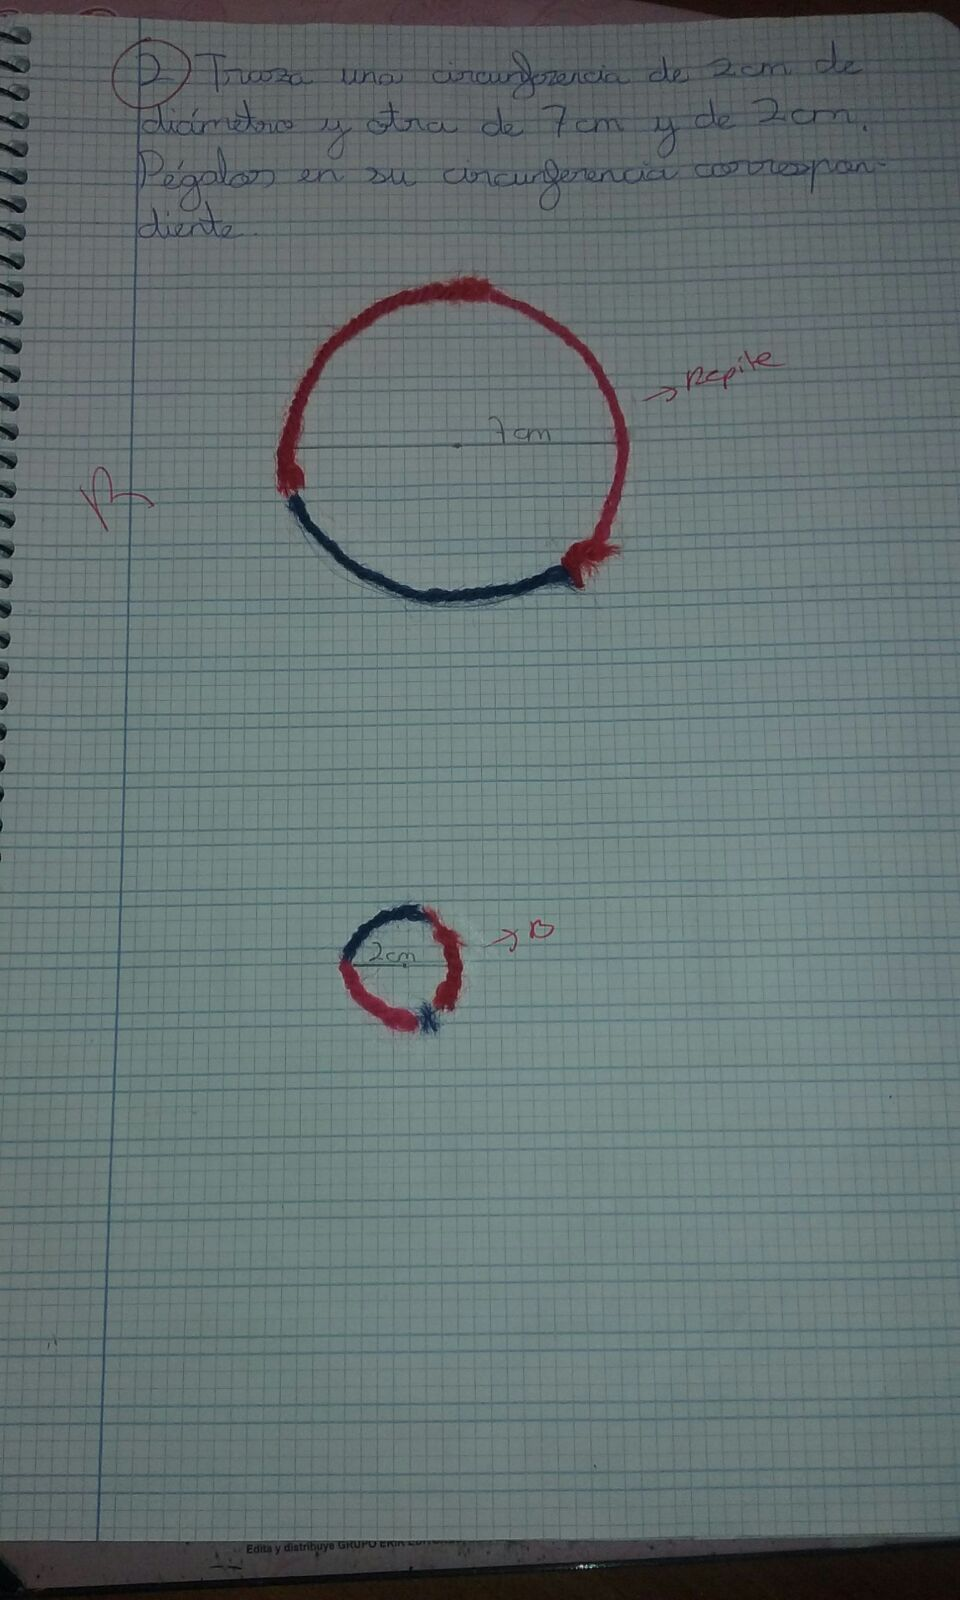 2 Traza una circunferencia de 2cm de
diámetro y otra de 7cm y de 2cm.
Pégalos en su circunferencia correspon-
diente.
→ Repite
7cm
B
→ B
2cm
Edita y distribuye GRUPO ERIK